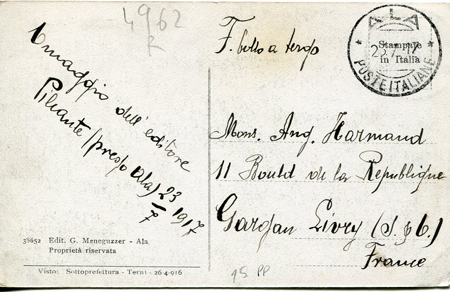 4962
R
F. bollo a tergo
ALA
Stampato
in Italia
23.7.17
POSTE ITALIANE
Omaggio dell' editore
Pilcante (presso Ala) 23/7 1917
Mons. Ang. Harmand
11 Bould de la Republique
Gargan Livry (S. & O.)
France
38652 Edit. G. Meneguzzer - Ala
Proprietà riservata
Visto: Sottoprefettura - Terni - 26-4-916